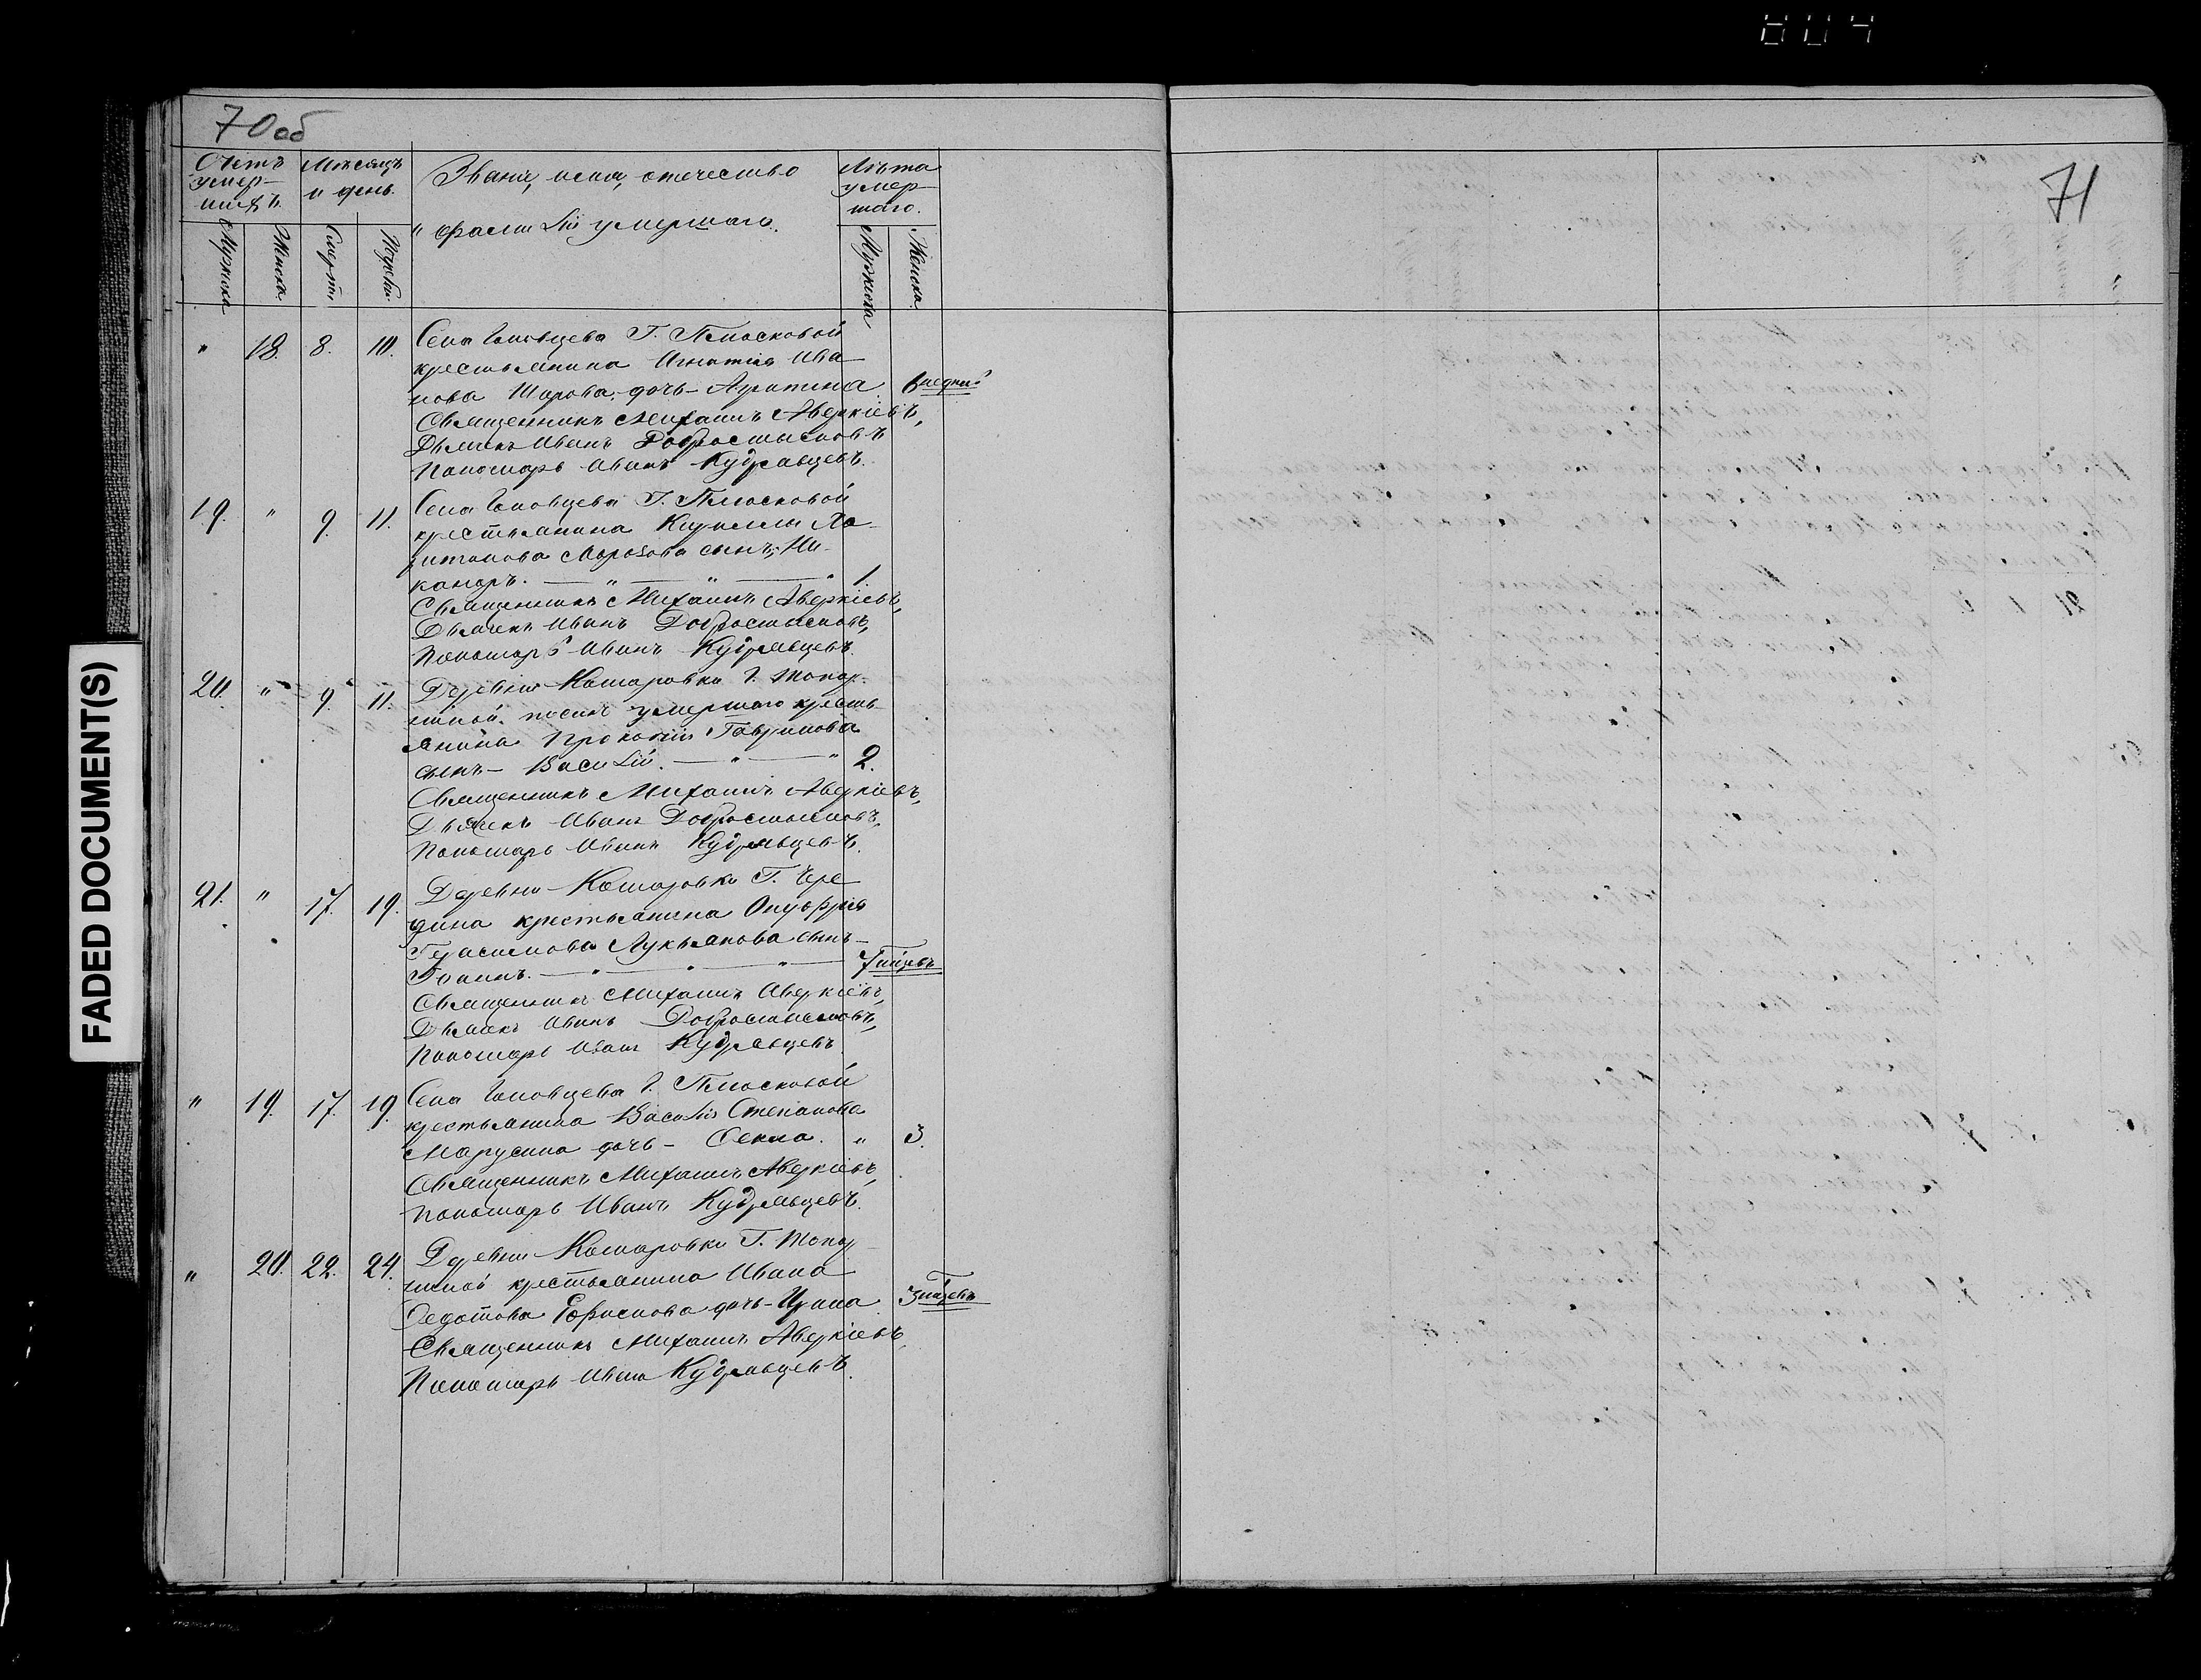 804
70об
71
Счетъ умер-шихъ.
Мѣсяцъ и день.
Званіе, имя, отечество
и фамилія умершаго.
Лѣта умер-шаго.
Мужеска
Женска
Смерти
Погребен.
Мужеска
Женска
" 18. 8. 10. Села Головцева Г. Плюсковой
крестьянина Игнатія Ива-
нова Шарова дочь - Агрипина
Священникъ Михаилъ Аверкіевъ,
Дьячекъ Иванъ Добросмысловъ
Пономарь Иванъ Кудрявцевъ.
19. " 9. 11. Села Головцева Г. Плюсковой
крестьянина Кирилла Ха-
ритонова Морозова сынъ, Ни-
каноръ. — " — " — " 1.
Священникъ Михаилъ Аверкіевъ,
Дьячекъ Иванъ Добросмысловъ,
Пономарь Иванъ Кудрявцевъ.
20. " 9. 11. Деревни Комаровки Г.
послѣ умершаго кресть-
янина Прокопія Гаврилова
сынъ - Василій. — " — " 2.
Священникъ Михаилъ Аверкіевъ,
Дьячекъ Иванъ Добросмысловъ,
Пономарь Иванъ Кудрявцевъ.
21. " 17. 19. Деревни Комаровки Г. Чере-
дина крестьянина Онуфрія
Герасимова Лукьянова сынъ -
Іоаннъ. — " — " — "
Священникъ Михаилъ Аверкіевъ,
Дьячекъ Иванъ Добросмысловъ,
Пономарь Иванъ Кудрявцевъ
" 19. 17. 19. Села Головцева Г. Плюсковой
крестьянина Василія Степанова
Марусина дочь - Фекла. " 3.
Священникъ Михаилъ Аверкіевъ,
Пономарь Иванъ Кудрявцевъ.
" 20. 22. 24. Деревни Комаровки Г.
крестьянина Ивана
Федотова Ефимова дочь - Ирина
Священникъ Михаилъ Аверкіевъ,
Пономарь Иванъ Кудрявцевъ.
FADED DOCUMENT(S)